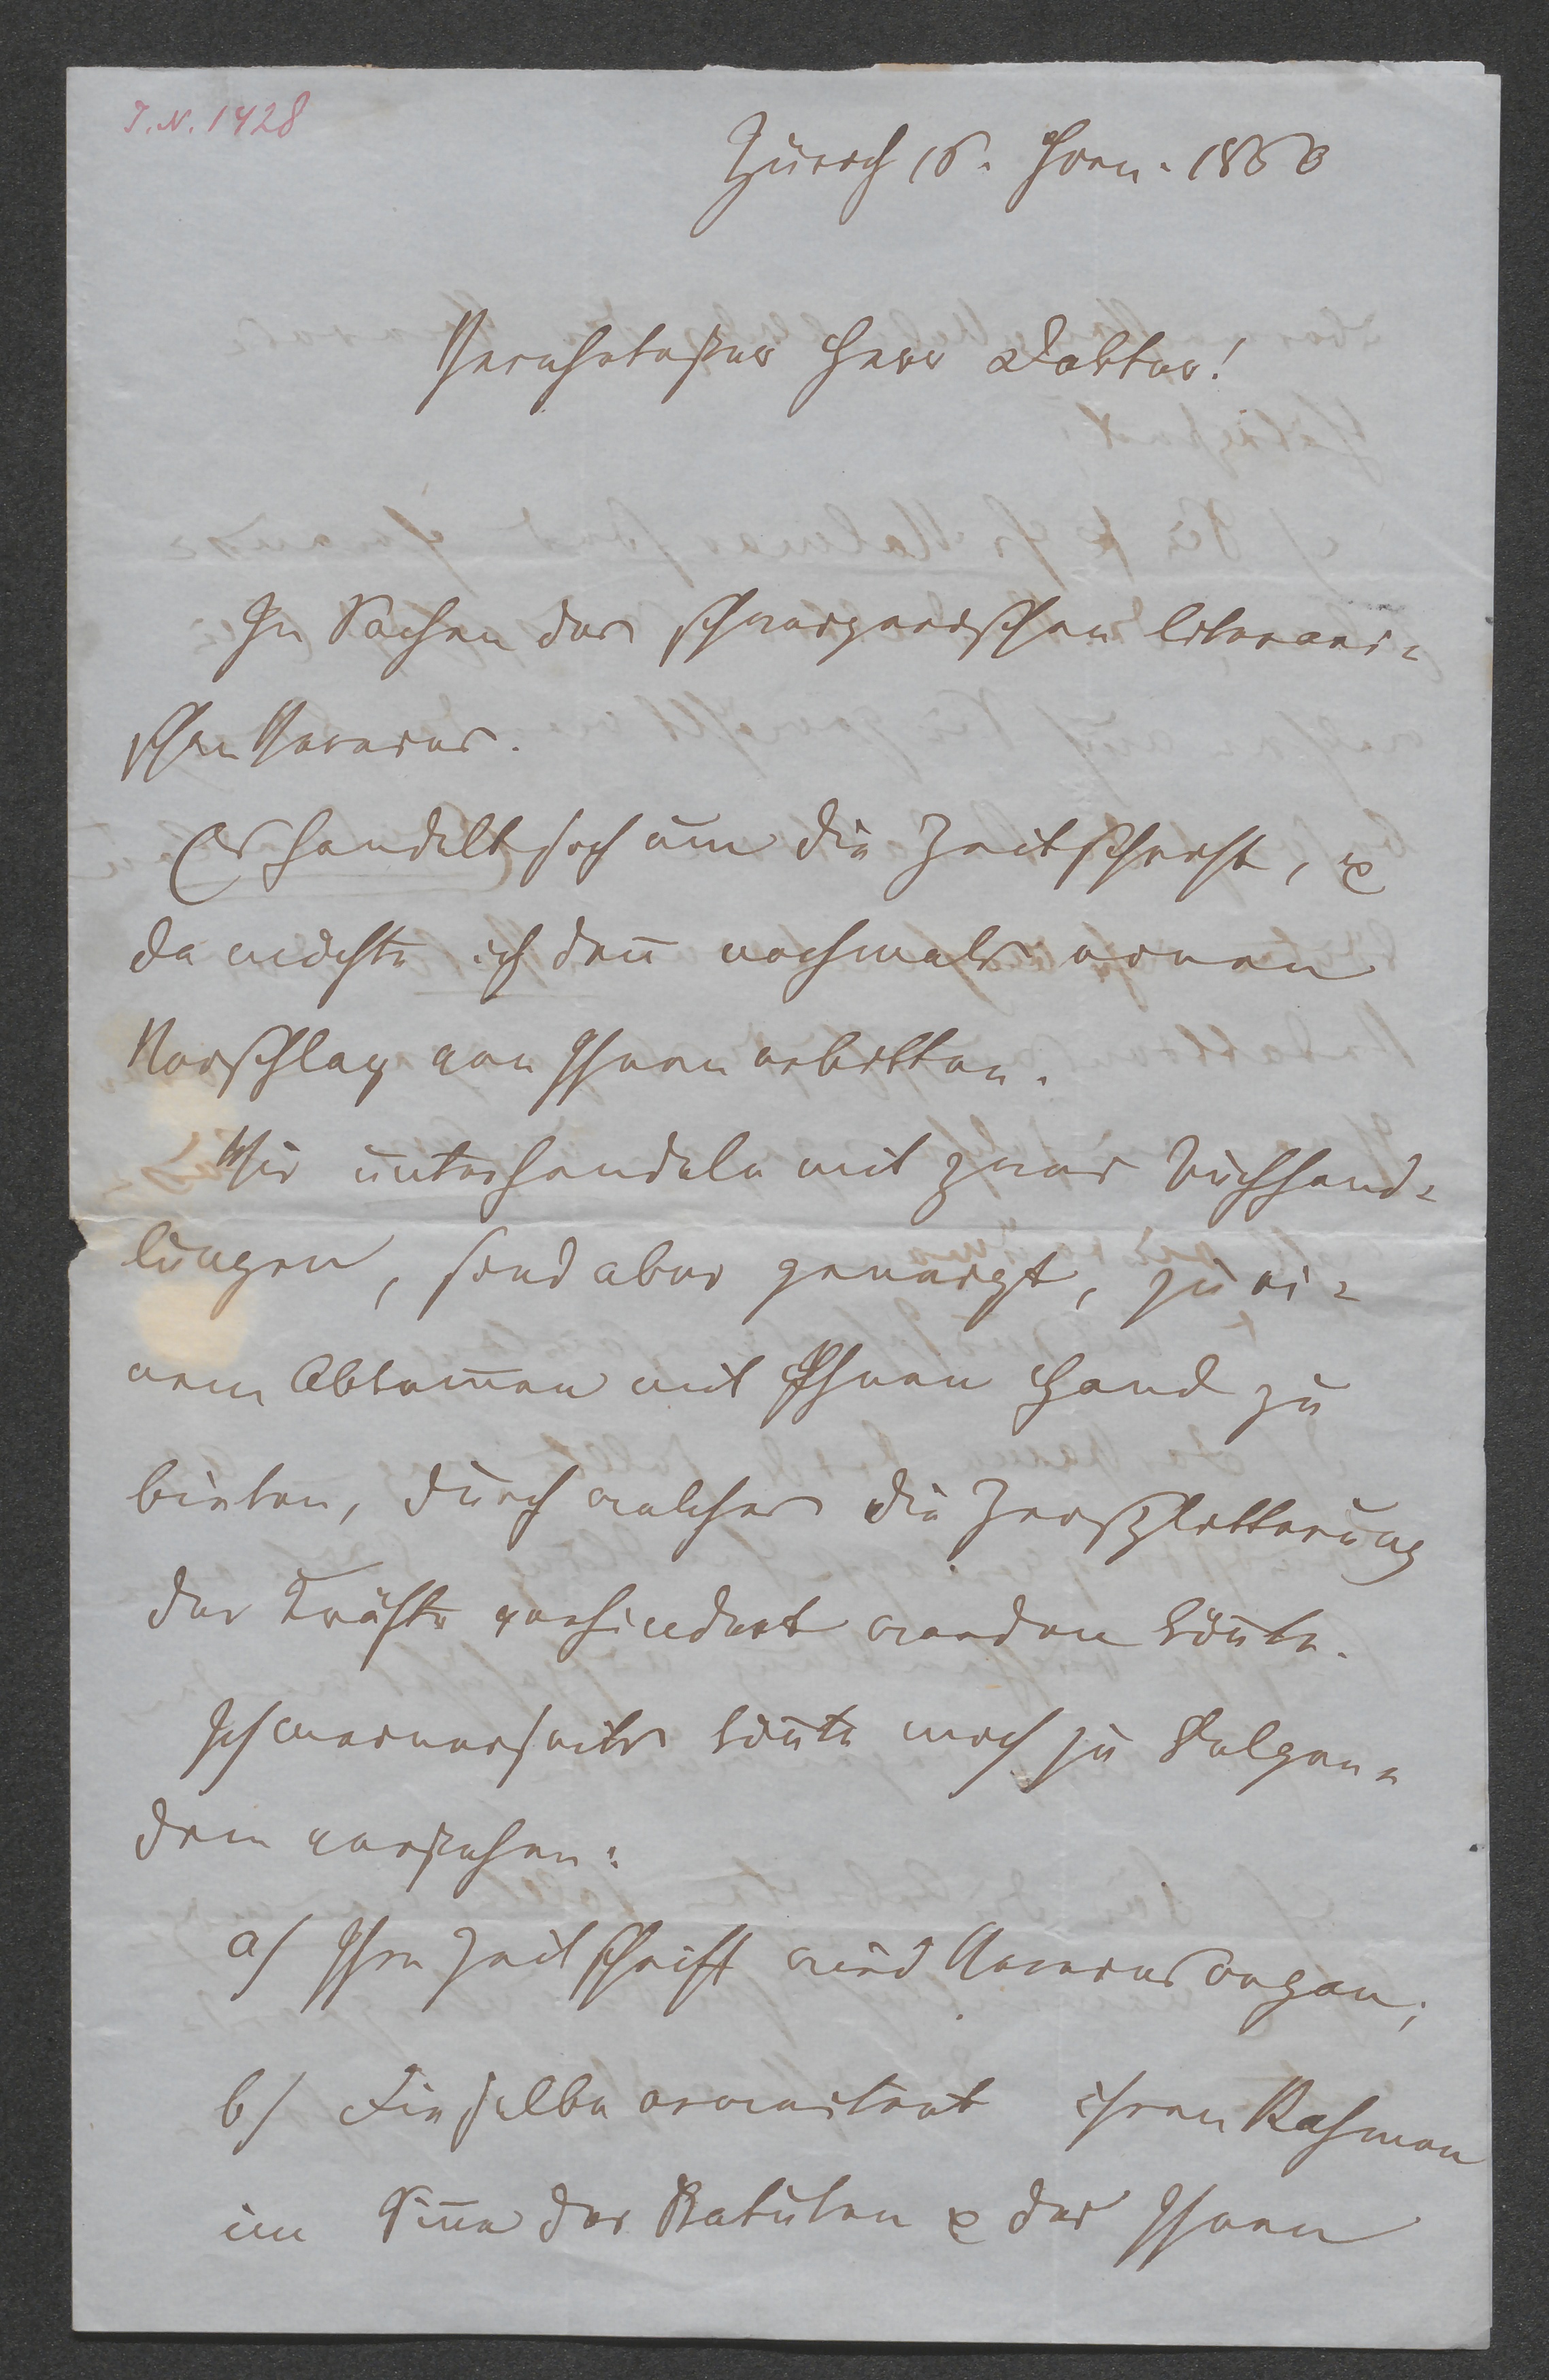 J.N. 1428
Zürich 16. Horn. 1856
Verehrtester Herr Doktor!
In Sachen des schweizerischen literari-
schen Vereins.
Es handelt sich um die Zeitschrift, &
da möchte ich deñ nochmals einen
Vorschlag von Ihnen erbitten.
Wir unterhandeln mit zwei Buchhand-
lungen, sind aber geneigt, zu ei-
nem Abkom̄en mit Ihnen Hand zu
bieten, durch welches die Zersplitterung
der Kräfte verhindert werden köñte.
Ich meinerseits köñte mich zu Folgen-
dem verstehen:
a/ Ihre Zeitschrift wird Vereinsorgan;
b/ Dieselbe erweitert ihren Rahmen
im Siñe der Statuten & der Ihnen